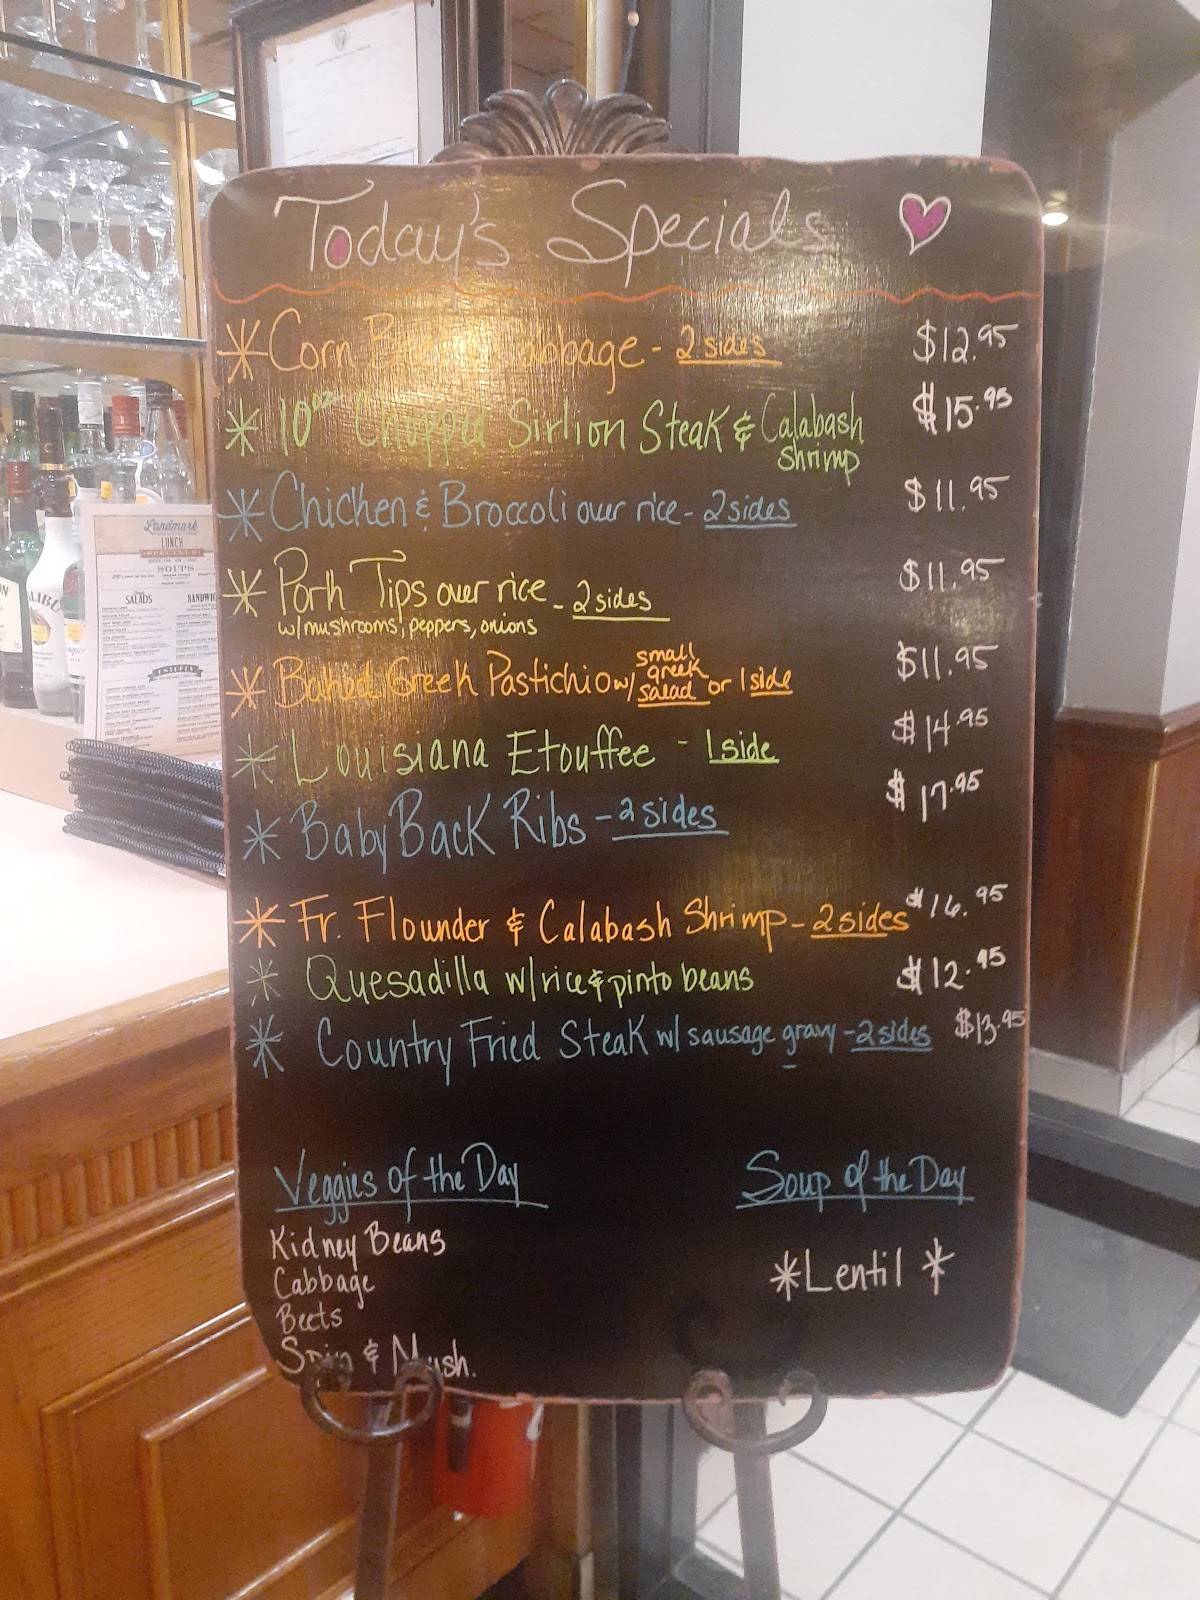 Today's Specials
Corn Beef & Cabbage - 2 sides $12.95
10oz Chopped Sirlion Steak & Calabash $15.95
Shrimp
Chicken & Broccoli over rice - 2 sides $11.95
Pork Tips over rice - 2 sides $11.95
w/ mushrooms, peppers, onions
small
greek
Baked Greek Pastichio w/ salad or 1 side $11.95
Louisiana Etouffee - 1 side $14.95
Baby Back Ribs - 2 sides $17.95
Fr. Flounder & Calabash Shrimp - 2 sides $16.95
Quesadilla w/ rice & pinto beans $12.95
Country Fried Steak w/ sausage gravy - 2 sides $13.95
Veggies of the Day
Kidney Beans
Cabbage
Beets
Spin & Mush.
Soup of the Day
*Lentil*
Landmark
LUNCH
SPECIALS
SOUPS
SALADS